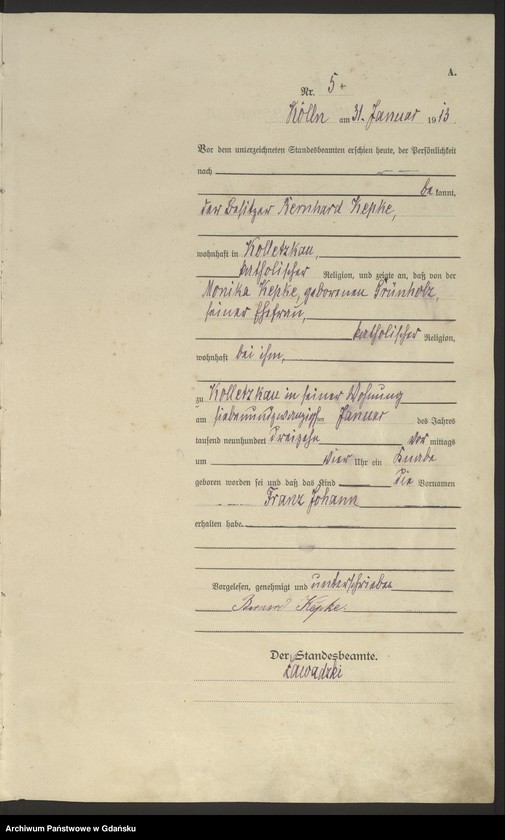 A.
Nr. 5
Kölln am 31. Januar 1913
Vor dem unterzeichneten Standesbeamten erschien heute, der Persönlichkeit
nach
bekannt,
der Besitzer Bernhard Kepke,
wohnhaft in Kolletzkau,
katholischer Religion, und zeigte an, daß von der
Monika Kepke, geborenen Grünholz,
seiner Ehefrau,
katholischer Religion,
wohnhaft bei ihm,
zu Kolletzkau in seiner Wohnung
am siebenundzwanzigsten Januar des Jahres
tausend neunhundert dreizehn vormittags
um vier Uhr ein Knabe
geboren worden sei und daß das Kind die Vornamen
Franz Johann
erhalten habe.
Vorgelesen, genehmigt und unterschrieben
Kepke.
Der Standesbeamte.
Zawadzki
Archiwum Państwowe w Gdańsku